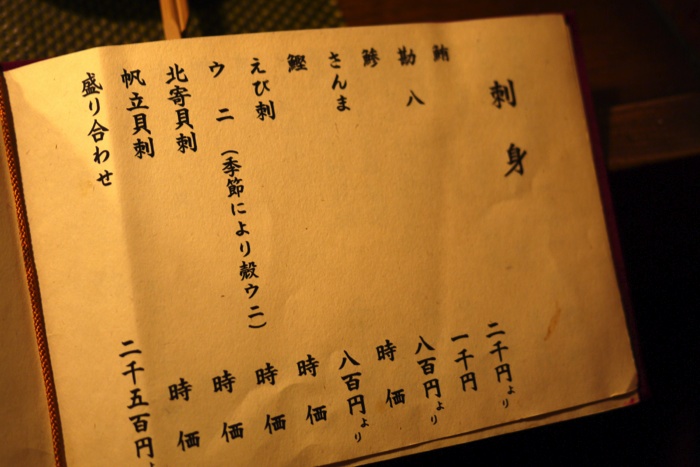 刺身
鮪 二千円より
勘八 一千円
鯵 八百円より
さんま 時価
鰹 八百円より
えび刺 時価
ウニ（季節により殻ウニ） 時価
北寄貝刺 時価
帆立貝刺 時価
盛り合わせ 二千五百円よ